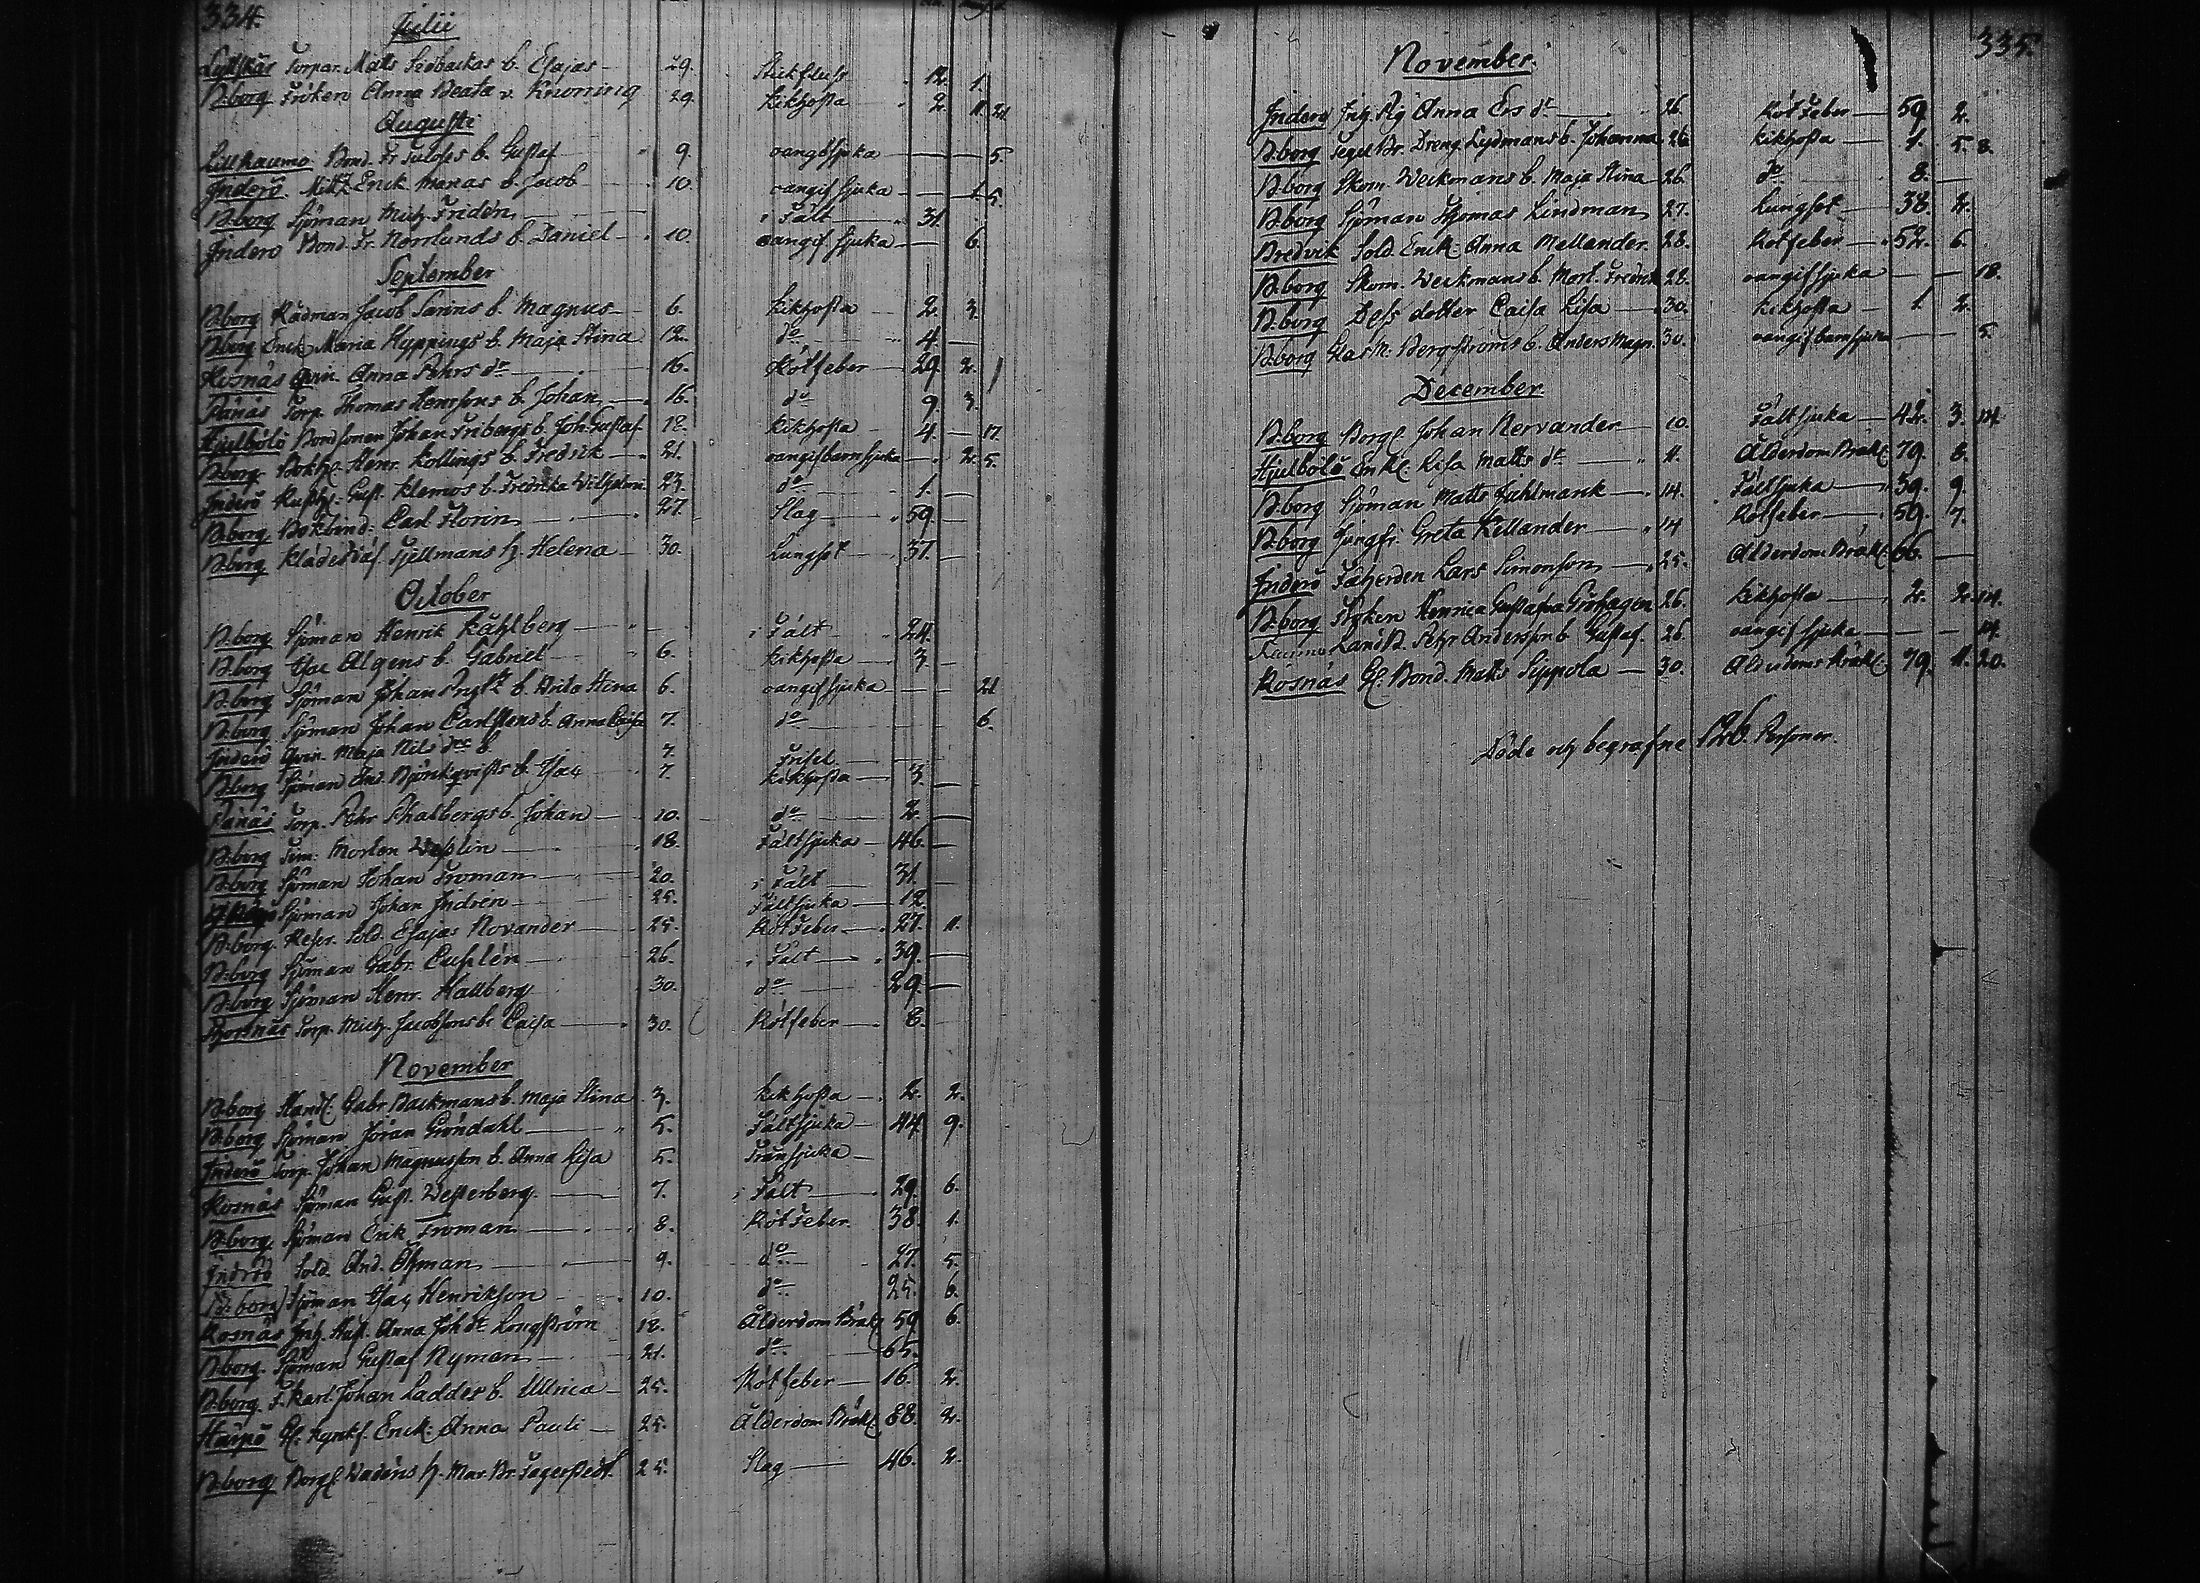 334.
Julii
Torpar. Matts Sedbackas b. Esajas 29. Stickfluss 12. 1.
B:borg Fröken Anna Beata v. Knorring 29. Kikhosta 2. 11. 21.
Augusti
Lillkaumo Bond. Fr b. Gustaf 9. oangifsjuka — — 5.
Inderö Erick Manas b. Jacob 10. oangifsjuka — 1. 5.
B:borg Sjöman Mich. Fridén i Fält 31.
Inderö Bond. Fr. Norrlunds b. Daniel 10. oangif. sjuka — 6.
September
B:borg Rådman Jacob Sarins b. Magnus 6. Kikhosta 2. 3.
B:borg Enck. Maria Hyppings b. Maja Stina 12. do 4. —
Kosnäs Qvin. Anna Pehrs dr 16. Rötfeber 29. 2.
Pänäs Torp. Thomas Henrssons b. Johan 16. do 9. 3.
Hjulbölö Bondsonen Johan Fribergs b. Joh. Gustaf 18. Kikhosta 4. — 17.
B:borg Bokh. Henr. Kollings b. Fredrik 21. oangifbarnsjuka — 2. 5.
Inderö Gust. Klemos b. Fredrika Wilhelm. 23. do 1. —
B:borg Bokbind. Carl Florin 27. Slag 59. —
B:borg Fjellmans h. Helena 30. Lungsot 37. —
October
B:borg Sjöman Henrik Kåhlberg — i Fält 24.
B:borg Isac Algens b. Gabriel 6. Kikhosta 3 —
B:borg Sjöman Johans b. Anna Stina 6. oangifsjuka — — 21
B:borg Sjöman Johan Carlstens b. Anna Caisa 7. do 6.
Inderö Qvin. Maja Nils drs b. 7. Frisel —
B:borg Sjöman And. Björkqvists b. Isac 7. Kikhosta 3. —
Pänäs Torp. Pehr Thalbergs b. Johan 10. do 2. —
B:borg Tim: Morten Weslin 18. Fältsjuka 46. —
B:borg Sjöman Johan Froman 20. i Fält 31. —
Sjöman Johan Indrén 25. Fältsjuka 12.
B:borg Reser. Sold. Esajas Novander 25. Rötfeber 27. 11.
B:borg Sjöman Gabr. Cuhlén 26. i Fält 39. —
B:borg Sjöman Henr. Hallberg 30. do 29. —
Torp. Mich. Jacobsons b. Caisa 30. Rötfeber 8.
November
B:borg Handl. Gabr Backmans b. Maja Stina 3. Kikhosta 2. 2.
B:borg Sjöman Jöran Gröndahl 5. Fältsjuka 44. 9.
Inderö Torp. Johan Magnusson b. Anna Lisa 5. Trånsjuka
Kosnäs Sjöman Gust. Westerberg 7. i Fält 29. 6.
B:borg Sjöman Erik Froman 8. Rötfeber 38. 1.
Inderö Sold. And. Öhman 9. do 27. 5.
B:borg Sjöman Isac Henrikson 10. do 25. 6.
Kosnäs Inh. Hust. Anna Joh dr Longström 12. Ålderdom Bräkl. 59 6.
B:borg Sjöman Gustaf Nyman 21. do 65.
B:borg F. Karl. Johan Laddes b. Ullrica 25. Rötfeber 16. 2.
Enck. Anna Pauli 25. Ålderdom Bräkl. 88. 2.
B:borg Borg. Wadéns h. Mar. Br. Fagerstedt 25. Slag 46. 2.
335.
November.
Inderö Inh. Pig Anna Ers dr 26. Rötfeber 59. 2.
B:borg Tegel Br. Dreng. Lydmans b. Johanna 26. Kikhosta 1. 5. 8.
B:borg Skom. Weckmans b. Maja Stina 26. do 8. —
B:borg Sjöman Thomas Lindman 27. Lungsot 38. 2.
Bredvik Sold. Enck. Anna Mellander 28. Rötfeber 52. 6.
B:borg Skom. Weckmans b. Mort. Fredrik 28. oangifsjuka — — 18.
B:borg Dess dotter Caisa Lisa 30. Kikhosta 1. 2.
B:borg Glas M. Bergströms b. Anders Magn. 30. oangifbarnsjuka — 5.
December.
B:borg Borg. Johan Nervander 10. Fältsjuka 42. 3. 14.
Hjulbölö Enk. Lisa Matts dr 11. Ålderdom Bräkl. 79. 8.
B:borg Sjöman Matts 14. Fältsjuka 39. 9.
B:borg Jungfr. Greta Kellander 14 Rötfeber 59. 7.
Inderö Fäherden Lars Simonson 25. Ålderdom Bräkl. 66. —
B:borg Fröken Henrica Gustafva Gröhagen 26. Kikhosta 2. 2. 14.
Pehr Andersson b. Gustaf 26. oangifsjuka — — 14.
Kosnäs Gl. Bond. Matts Sippola 30. Ålderdoms Bräkl. 79. 11. 20.
Döde och begrafne 126. Personer.